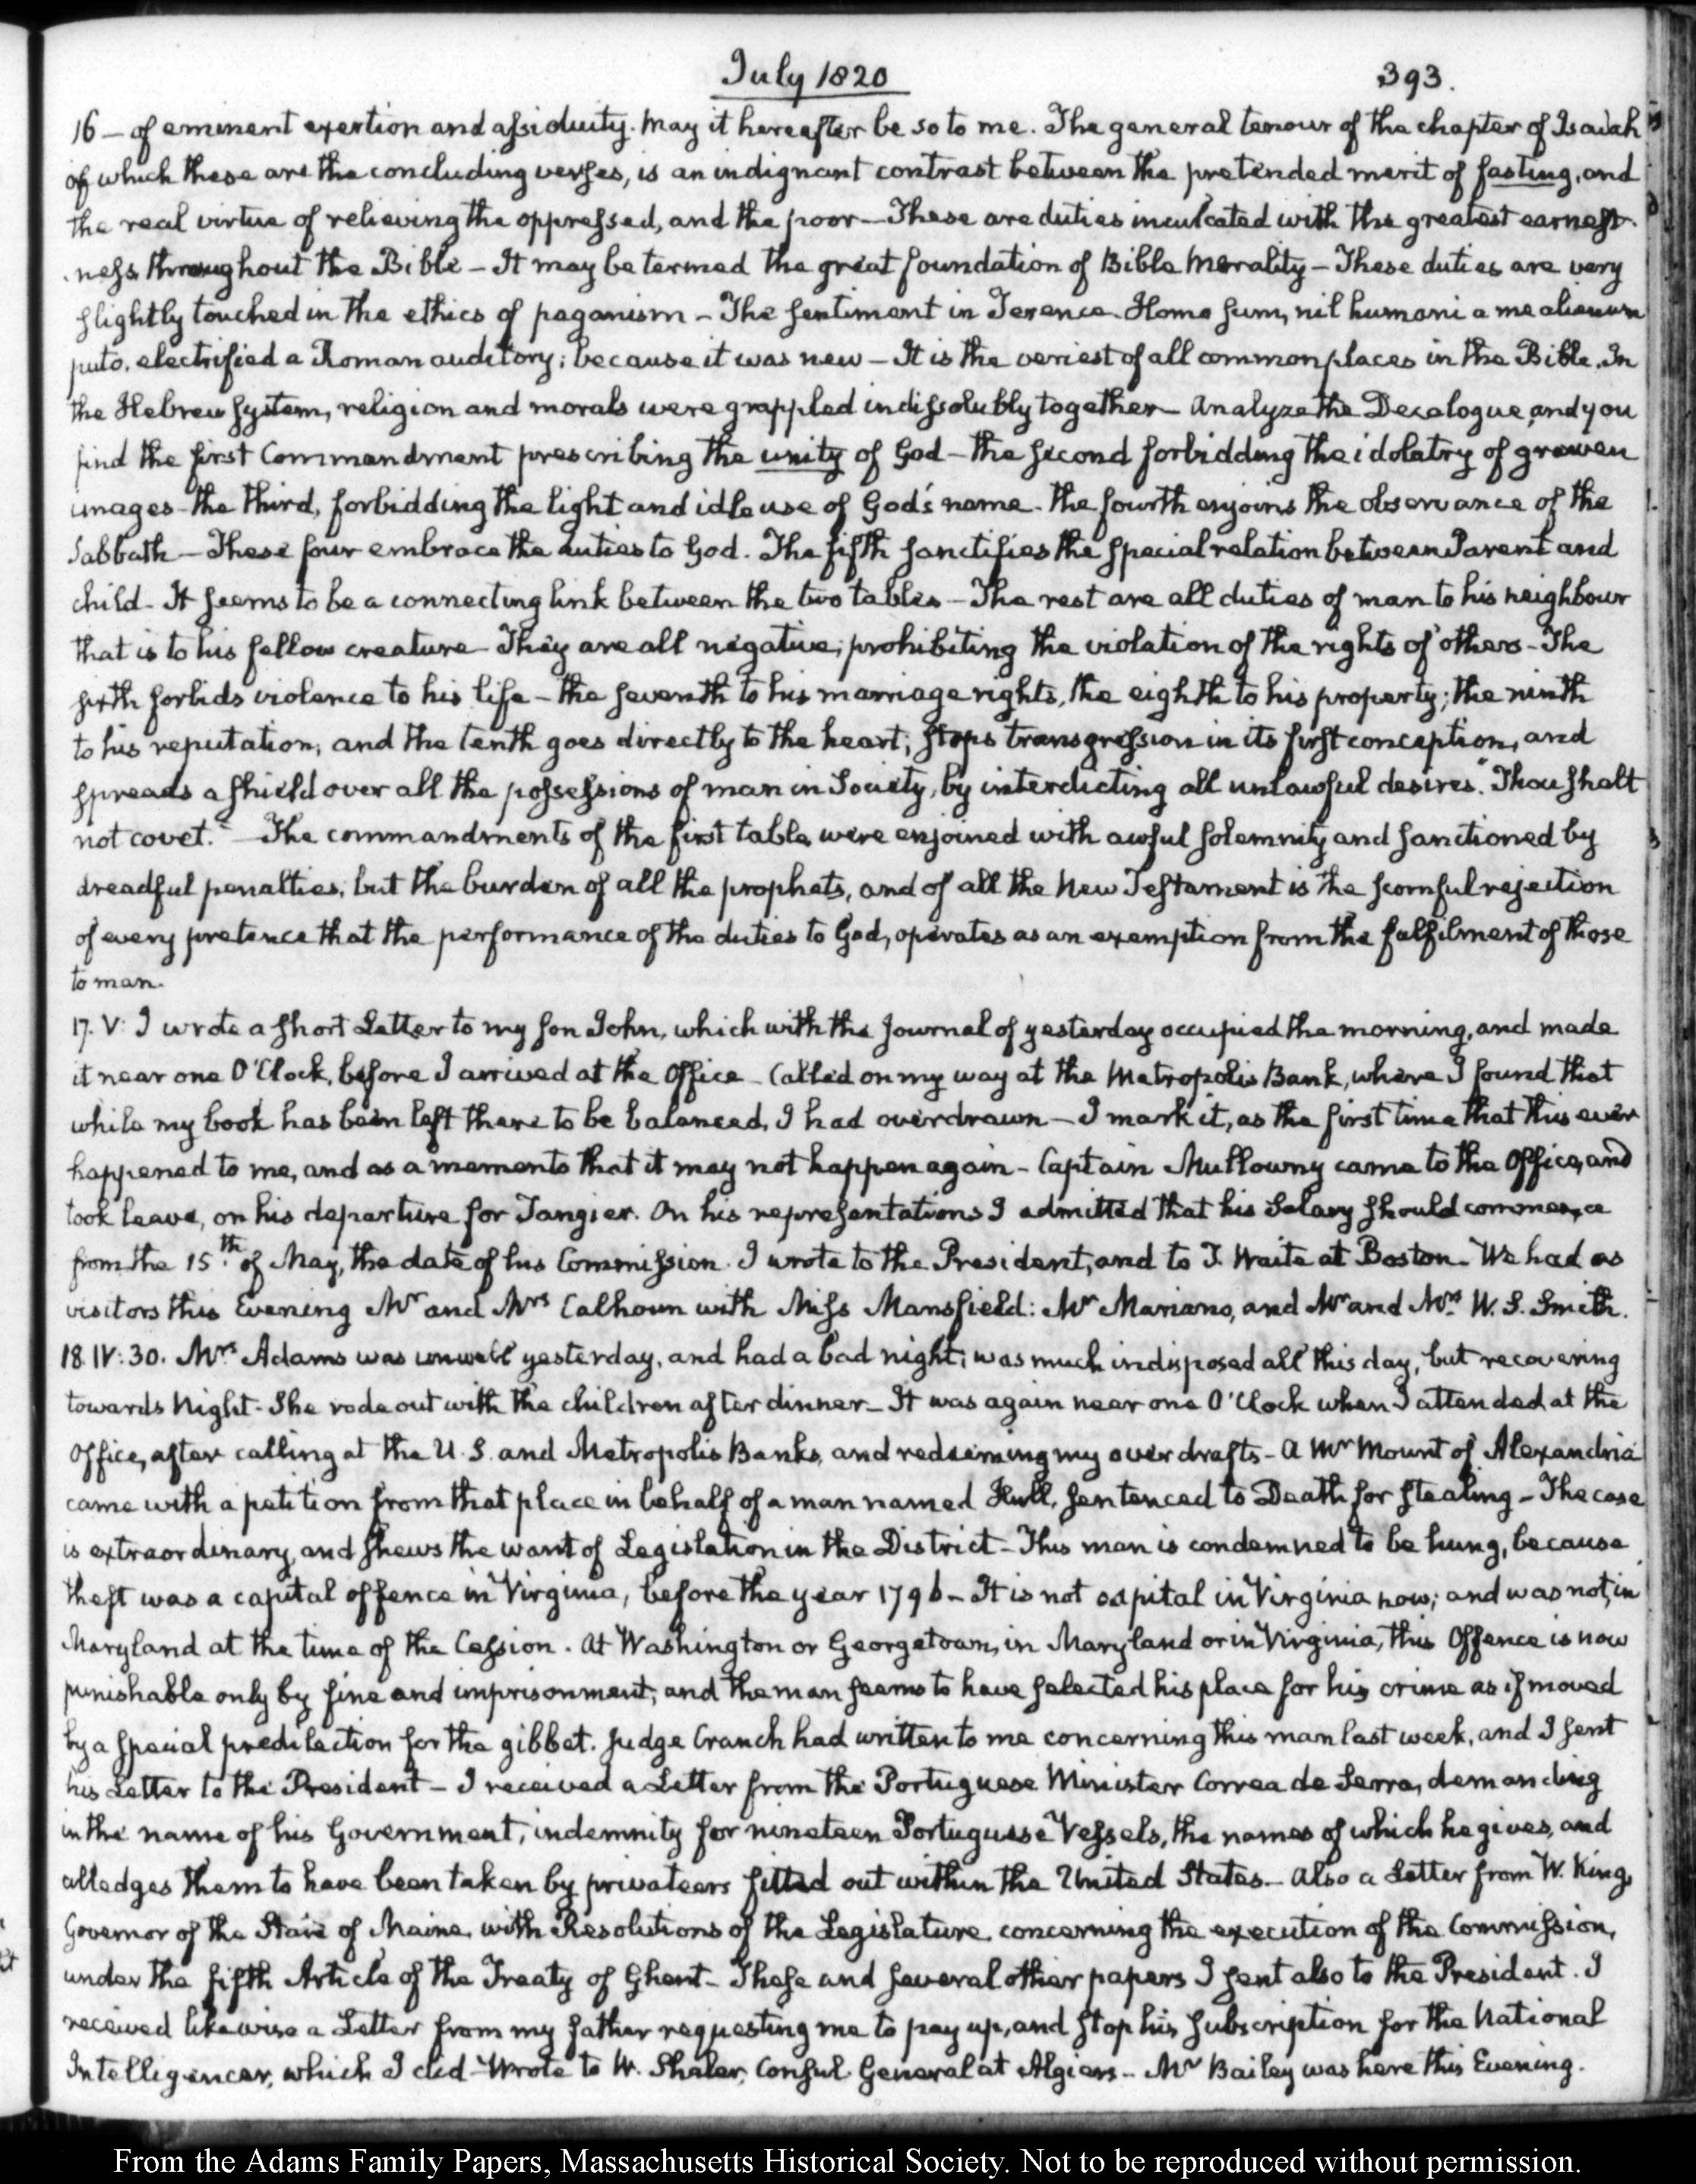 July 1820
393.
16 — of eminent exertion and assiduity. May it hereafter be so to me. The general tenour of the chapter of Isaiah
of which these are the concluding verses, is an indignant contrast between the pretended merit of fasting, and
the real virtue of relieving the oppressed, and the poor — These are duties inculcated with the greatest earnest-
-ness throughout the Bible — It may be termed the great foundation of Bible Morality — These duties are very
slightly touched in the ethics of paganism — The sentiment in Terence. Homo sum, nil humani a me alienum
puto, electrified a Roman auditory; because it was new — It is the veriest of all common places in the Bible. In
the Hebrew System, religion and morals were grappled indissolubly together — Analyze the Decalogue, and you
find the first Commandment prescribing the unity of God — the second forbidding the idolatry of graven
images — the third, forbidding the light and idle use of God's name. the fourth enjoins the observance of the
Sabbath — These four embrace the duties to God. The fifth sanctifies the special relation between Parent and
child — It seems to be a connecting link between the two tables — The rest are all duties of man to his neighbour
that is to his fellow creature — They are all negative; prohibiting the violation of the rights of others — The
sixth forbids violence to his life — the seventh to his marriage rights, the eighth to his property; the ninth
to his reputation; and the tenth goes directly to the heart; stops transgression in its first conception, and
spreads a shield over all the possessions of man in Society, by interdicting all unlawful desires. "Thou shalt
not covet." — The commandments of the first table were enjoined with awful solemnity and sanctioned by
dreadful penalties; but the burden of all the prophets, and of all the New Testament is the scornful rejection
of every pretence that the performance of the duties to God, operates as an exemption from the fulfilment of those
to man.
17. V: I wrote a short Letter to my son John, which with the Journal of yesterday occupied the morning, and made
it near one O'Clock, before I arrived at the Office — Called on my way at the Metropolis Bank, where I found that
while my book has been left there to be balanced, I had overdrawn — I mark it, as the first time that this ever
happened to me, and as a memento that it may not happen again — Captain Mullowny came to the Office, and
took leave, on his departure for Tangier. On his representations I admitted that his Salary should commence
from the 15th of May, the date of his Commission. I wrote to the President, and to T. Waite at Boston — We had as
visitors this Evening Mr and Mrs Calhoun with Miss Mansfield: Mr Mariano, and Mr and Mrs W. S. Smith.
18. IV:30. Mrs Adams was unwell yesterday, and had a bad night; was much indisposed all this day, but recovering
towards Night. She rode out with the children after dinner — It was again near one O'Clock when I attended at the
Office, after calling at the U.S. and Metropolis Banks, and redeeming my overdrafts — A Mr Mount of Alexandria
came with a petition from that place in behalf of a man named Hull, sentenced to Death for stealing — The case
is extraordinary, and shews the want of Legislation in the District — This man is condemned to be hung, because
theft was a capital offence in Virginia, before the year 1796 — It is not capital in Virginia now; and was not, in
Maryland at the time of the Cession. At Washington or Georgetown, in Maryland or in Virginia, this Offence is now
punishable only by fine and imprisonment; and the man seems to have selected his place for his crime as if moved
by a special predilection for the gibbet. Judge Cranch had written to me concerning this man last week, and I sent
his Letter to the President — I received a Letter from the Portuguese Minister Correa de Serra, demanding
in the name of his Government, indemnity for nineteen Portuguese Vessels, the names of which he gives, and
alledges them to have been taken by privateers fitted out within the United States — Also a Letter from W. King,
Governor of the State of Maine, with Resolutions of the Legislature, concerning the execution of the Commission,
under the fifth Article of the Treaty of Ghent — These and several other papers I sent also to the President. I
received likewise a Letter from my father requesting me to pay up, and stop his subscription for the National
Intelligencer, which I did — Wrote to W. Shaler, Consul General at Algiers — Mr Bailey was here this Evening.
From the Adams Family Papers, Massachusetts Historical Society. Not to be reproduced without permission.